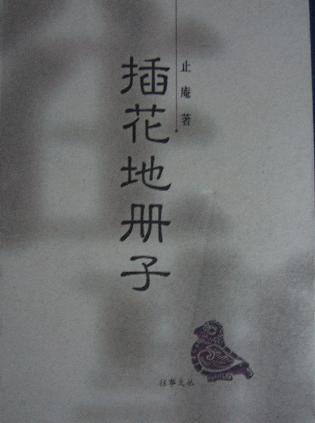 止庵著
插花地册子
往事文丛